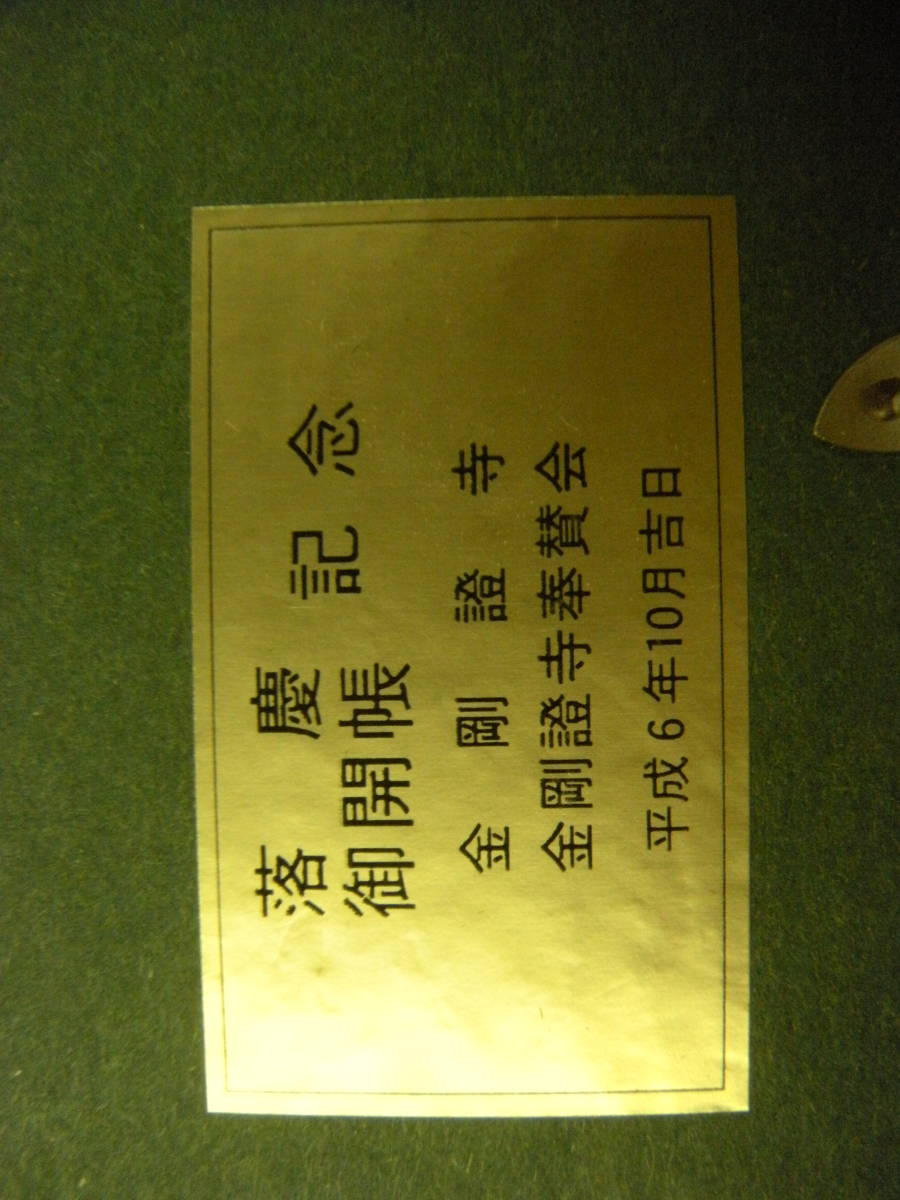 落慶
御開帳
記念
金剛證寺
金剛證寺奉賛会
平成6年10月吉日